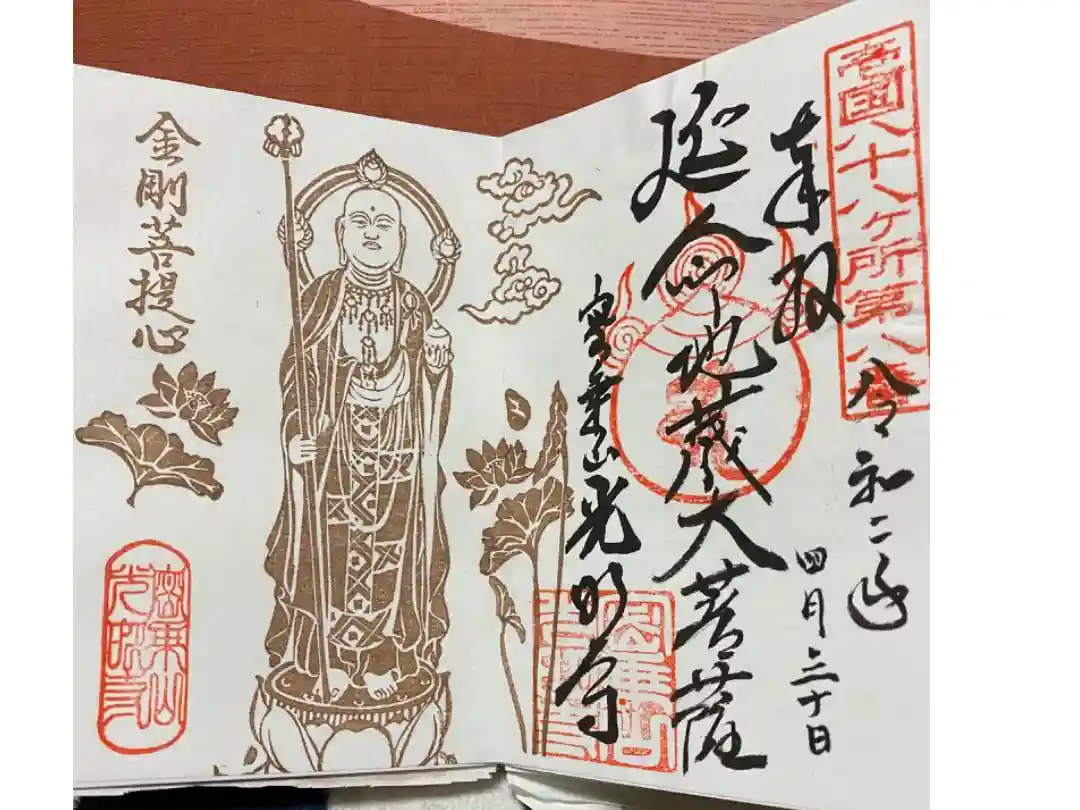 國八十八ヶ所第八番
奉拝
令和二年
四月三十日
延命地蔵大菩薩
密乗山光明寺
金剛菩提心
密乗山
光明寺